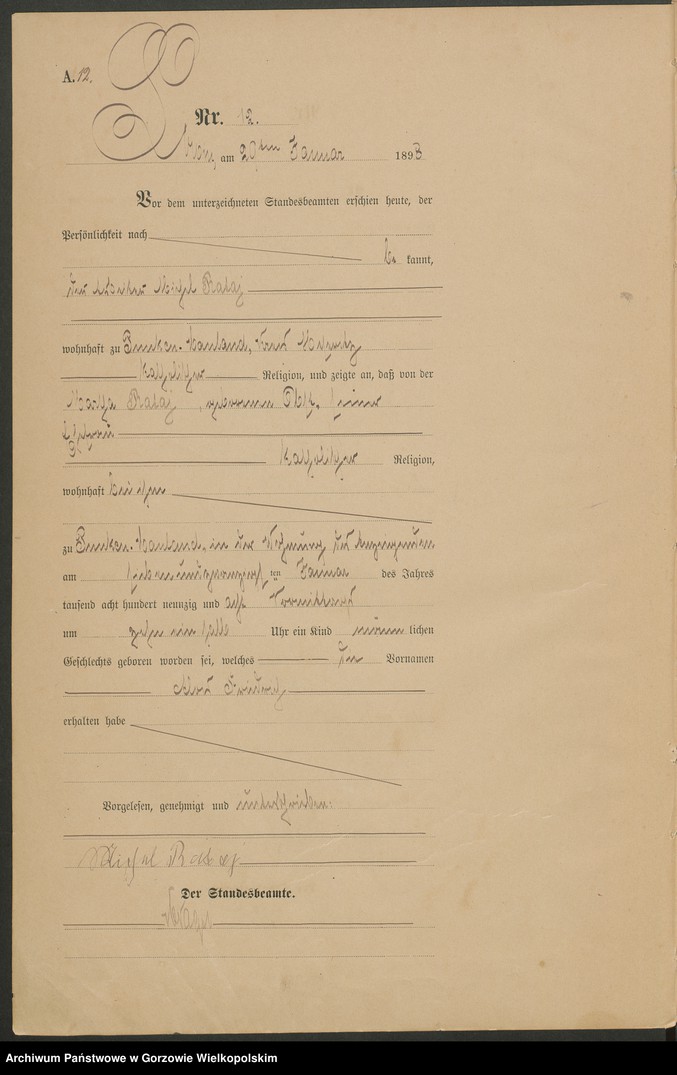 A. 12.
Nr. 12.
am 29ten Januar 1898
Vor dem unterzeichneten Standesbeamten erschien heute, der
Persönlichkeit nach
be kannt,
der Michel Rataj
wohnhaft zu Hauland, Kreis
katholischer Religion, und zeigte an, daß von der
Rataj, geborenen seiner
Ehefrau
katholischer Religion,
wohnhaft bei ihm
zu Hauland, in der Wohnung des Anzeigenden
am siebenundzwanzigsten Januar des Jahres
tausend acht hundert neunzig und acht Vormittags
um zehn ein halb Uhr ein Kind männ lichen
Geschlechts geboren worden sei, welches den Vornamen
Friedrich
erhalten habe
Vorgelesen, genehmigt und unterschrieben:
Michel Rataj
Der Standesbeamte.
Archiwum Państwowe w Gorzowie Wielkopolskim